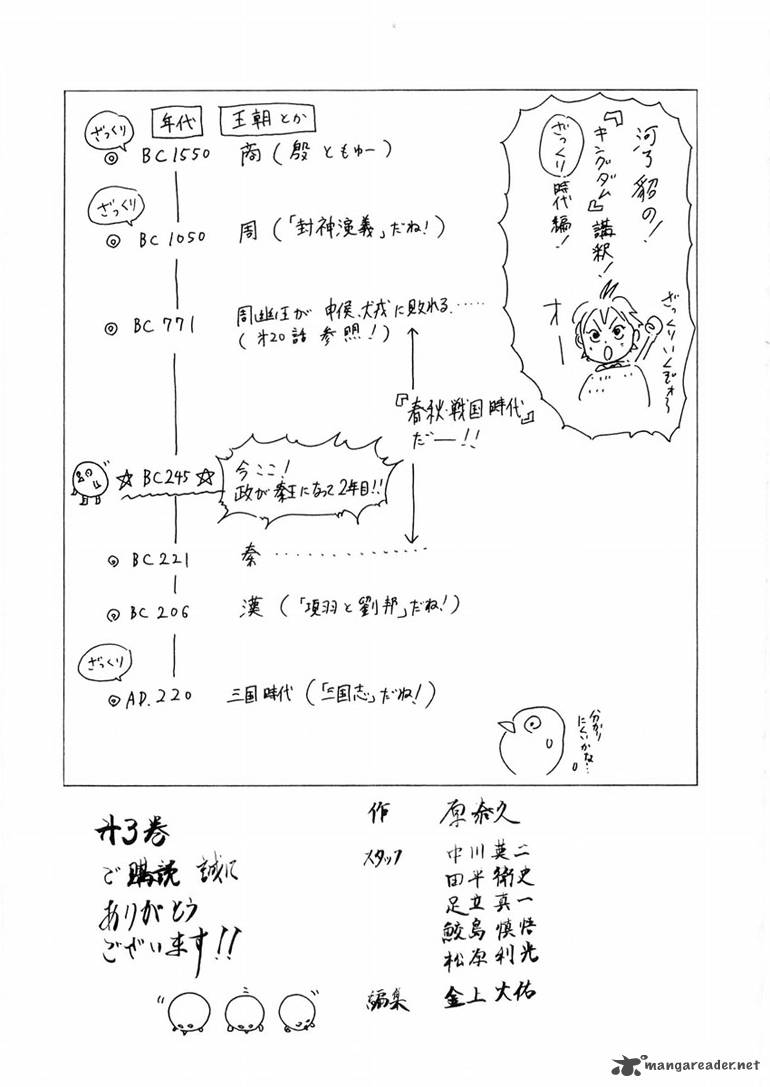 河了貂の!
『キングダム』講釈!
ざっくり時代編!
オー
ざっくりいくぞォ〜
年代 王朝とか
ざっくり
BC1550 商(殷ともゆー)
ざっくり
BC1050 周(「封神演義」だね!)
BC771 周幽王が申侯、犬戎に敗れる……
(才20話 参照!)
『春秋・戦国時代』
だー!!
☆BC245☆
今ここ!
政が秦王になって2年目!!
BC221 秦…………
BC206 漢(「項羽と劉邦」だね!)
ざっくり
AD.220 三国時代(「三国志」だね!)
分かり
にくいかな…
才3巻
ご購読 誠に
ありがとう
ございます!!
作 原泰久
スタッフ 中川英二
田平衛史
足立真一
鮫島慎悟
松原利光
編集 金上大佑
mangareader.net